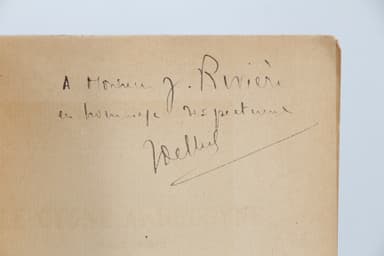 A Monsieur J. Rivière
en hommage respectueux